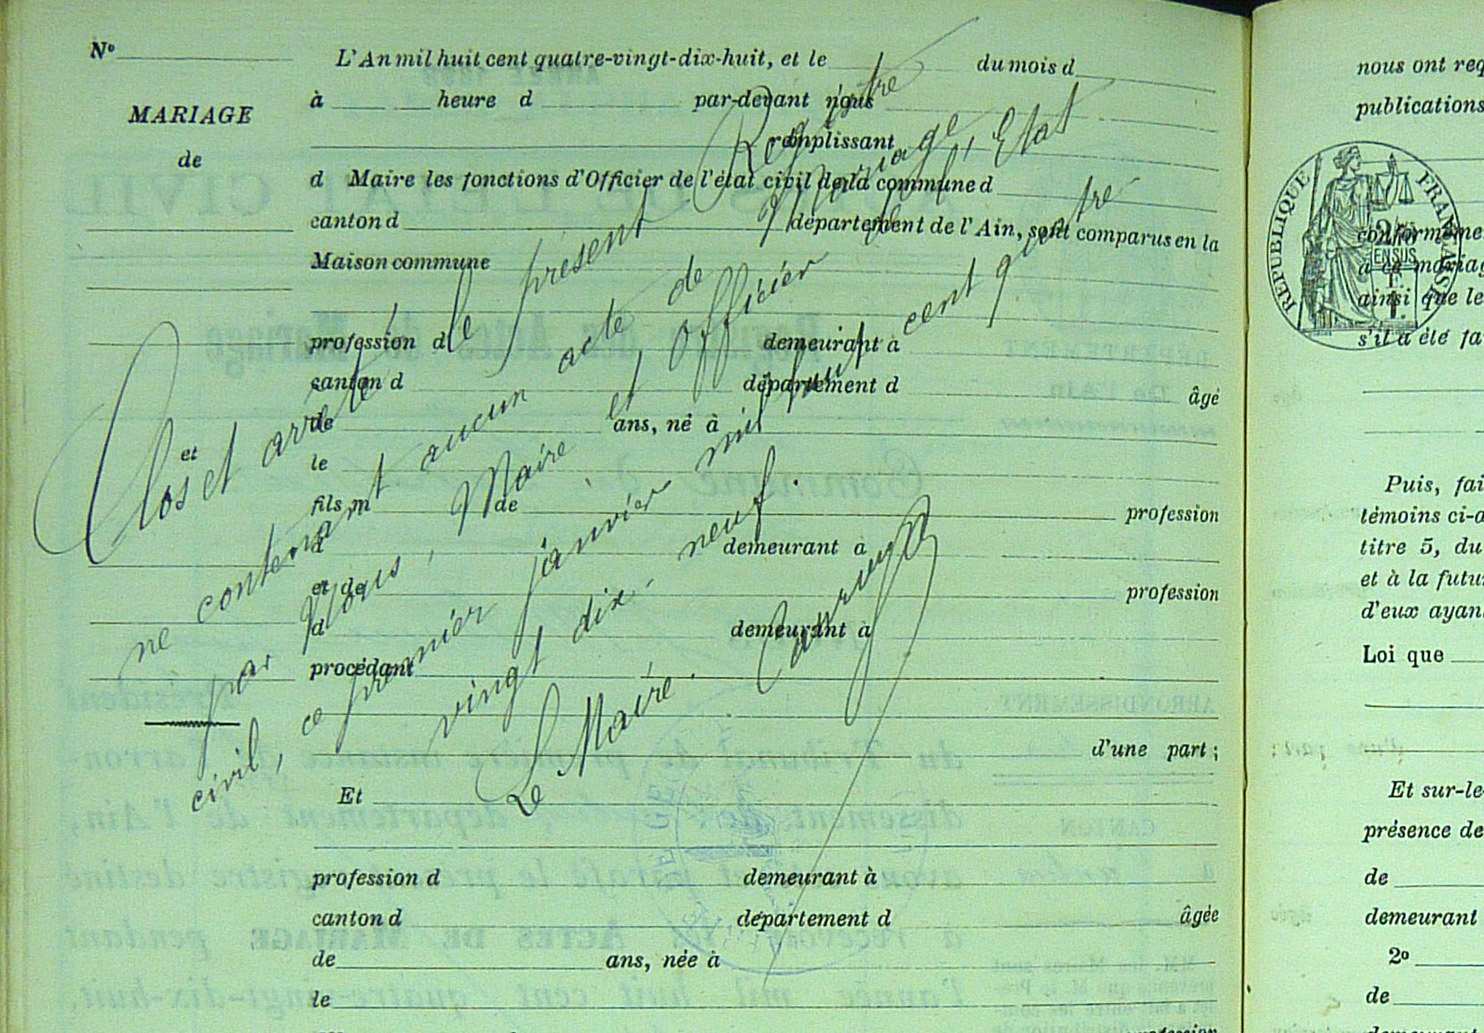 Nº
MARIAGE
de
et
L'An mil huit cent quatre-vingt-dix-huit, et le du mois d
à heure d par-devant nous
remplissant
d Maire les fonctions d'Officier de l'état civil de la commune d
canton d département de l'Ain, sont comparus en la
Maison commune
profession d demeurant à
canton d département d âgé
de ans, né à
le
fils m de profession
d demeurant à
et de profession
d demeurant à
procédant
d'une part ;
Et
profession d demeurant à
canton d département d âgée
de ans, née à
le
Clos et arrêté le présent Registre
ne contenant aucun acte de Mariage
par Nous, Maire et Officier de l'Etat
civil, ce premier janvier mil huit cent quatre-
vingt dix-neuf.
Le Maire.
nous ont req
publications
RÉPUBLIQUE FRANÇAISE
conforméme
à ce mariag
ainsi que le
s'il a été fa
Puis, fai
témoins ci-d
titre 5, du
et à la futu
d'eux ayan
Loi que
Et sur-le
présence de
de
demeurant
2º
de